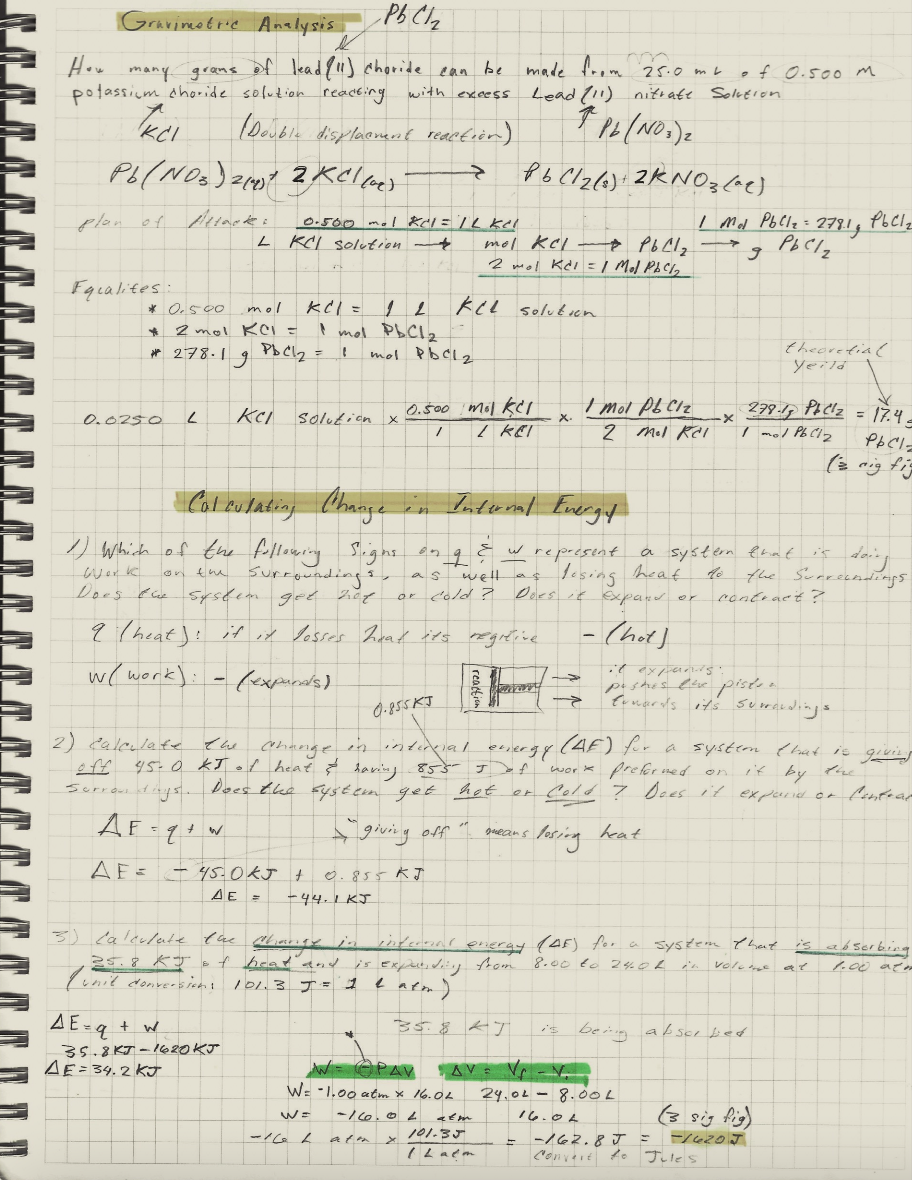 Gravimetric Analysis
PbCl2
How many grams of lead(II) choride can be made from 25.0 mL of 0.500 M
potassium choride solution reacting with excess Lead(II) nitrate Solution
KCl (Double displacment reaction) Pb(NO3)2
Pb(NO3)2(aq) + 2KCl(aq) → PbCl2(s) + 2KNO3(aq)
plan of Attack: 0.500 mol KCl = 1 L KCl 1 Mol PbCl2 = 278.1g PbCl2
L KCl solution → mol KCl → PbCl2 → g PbCl2
2 mol KCl = 1 Mol PbCl2
Equalites:
* 0.500 mol KCl = 1 L KCl solution
* 2 mol KCl = 1 mol PbCl2
* 278.1 g PbCl2 = 1 mol PbCl2
theoretial
yeild
0.0250 L KCl solution × 0.500 mol KCl / 1 L KCl × 1 Mol PbCl2 / 2 Mol KCl × 278.1g PbCl2 / 1 mol PbCl2 = 17.4g
PbCl2
(3 sig fig
Calculating Change in Internal Energy
1) Which of the following Signs on q & w represent a system that is doing
Work on the surroundings, as well as losing heat to the Surroundings
Does the system get hot or cold? Does it expand or contract?
q (heat): if it losses heat its negitive - (hot)
w(work): - (expands)
reaction
it expands:
pushes the piston
towards its surroundings
0.855KJ
2) Calculate the change in internal energy (ΔE) for a system that is giving
off 45.0 KJ of heat & having 855 J of work preformed on it by the
surroundings. Does the system get hot or Cold? Does it expand or Contrac
ΔE = q + w "giving off" means losing heat
ΔE = -45.0KJ + 0.855 KJ
ΔE = -44.1KJ
3) Calculate the change in internal energy (ΔE) for a system that is absorbing
35.8 KJ of heat and is expanding from 8.00 to 24.0L in volume at 1.00 atm
(unit conversion: 101.3 J = 1 L atm)
ΔE = q + w
35.8 KJ is being absorbed
35.8KJ - 1620KJ
ΔE = 34.2KJ
W = -PΔV ΔV = Vf - Vi
W = -1.00 atm × 16.0L 24.0L - 8.00L
W = -16.0 L atm 16.0L (3 sig fig)
-16 L atm × 101.3J / 1 L atm = -162.8 J = -1620J
Convert to Jules